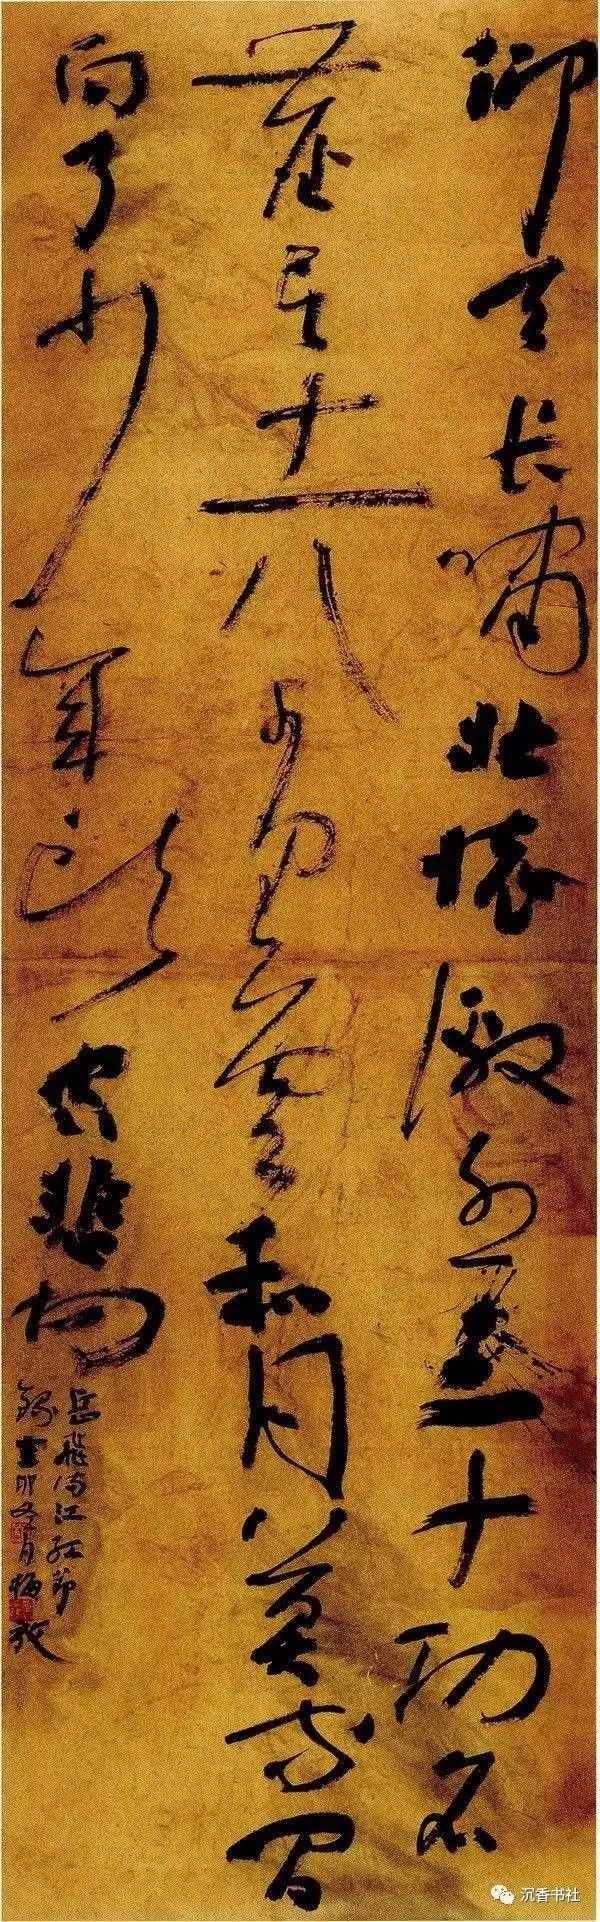 仰天长啸壮怀激烈三十功名
尘与土八千里路云和月莫等闲
白了少年头空悲切
岳飞满江红节
沉香书社